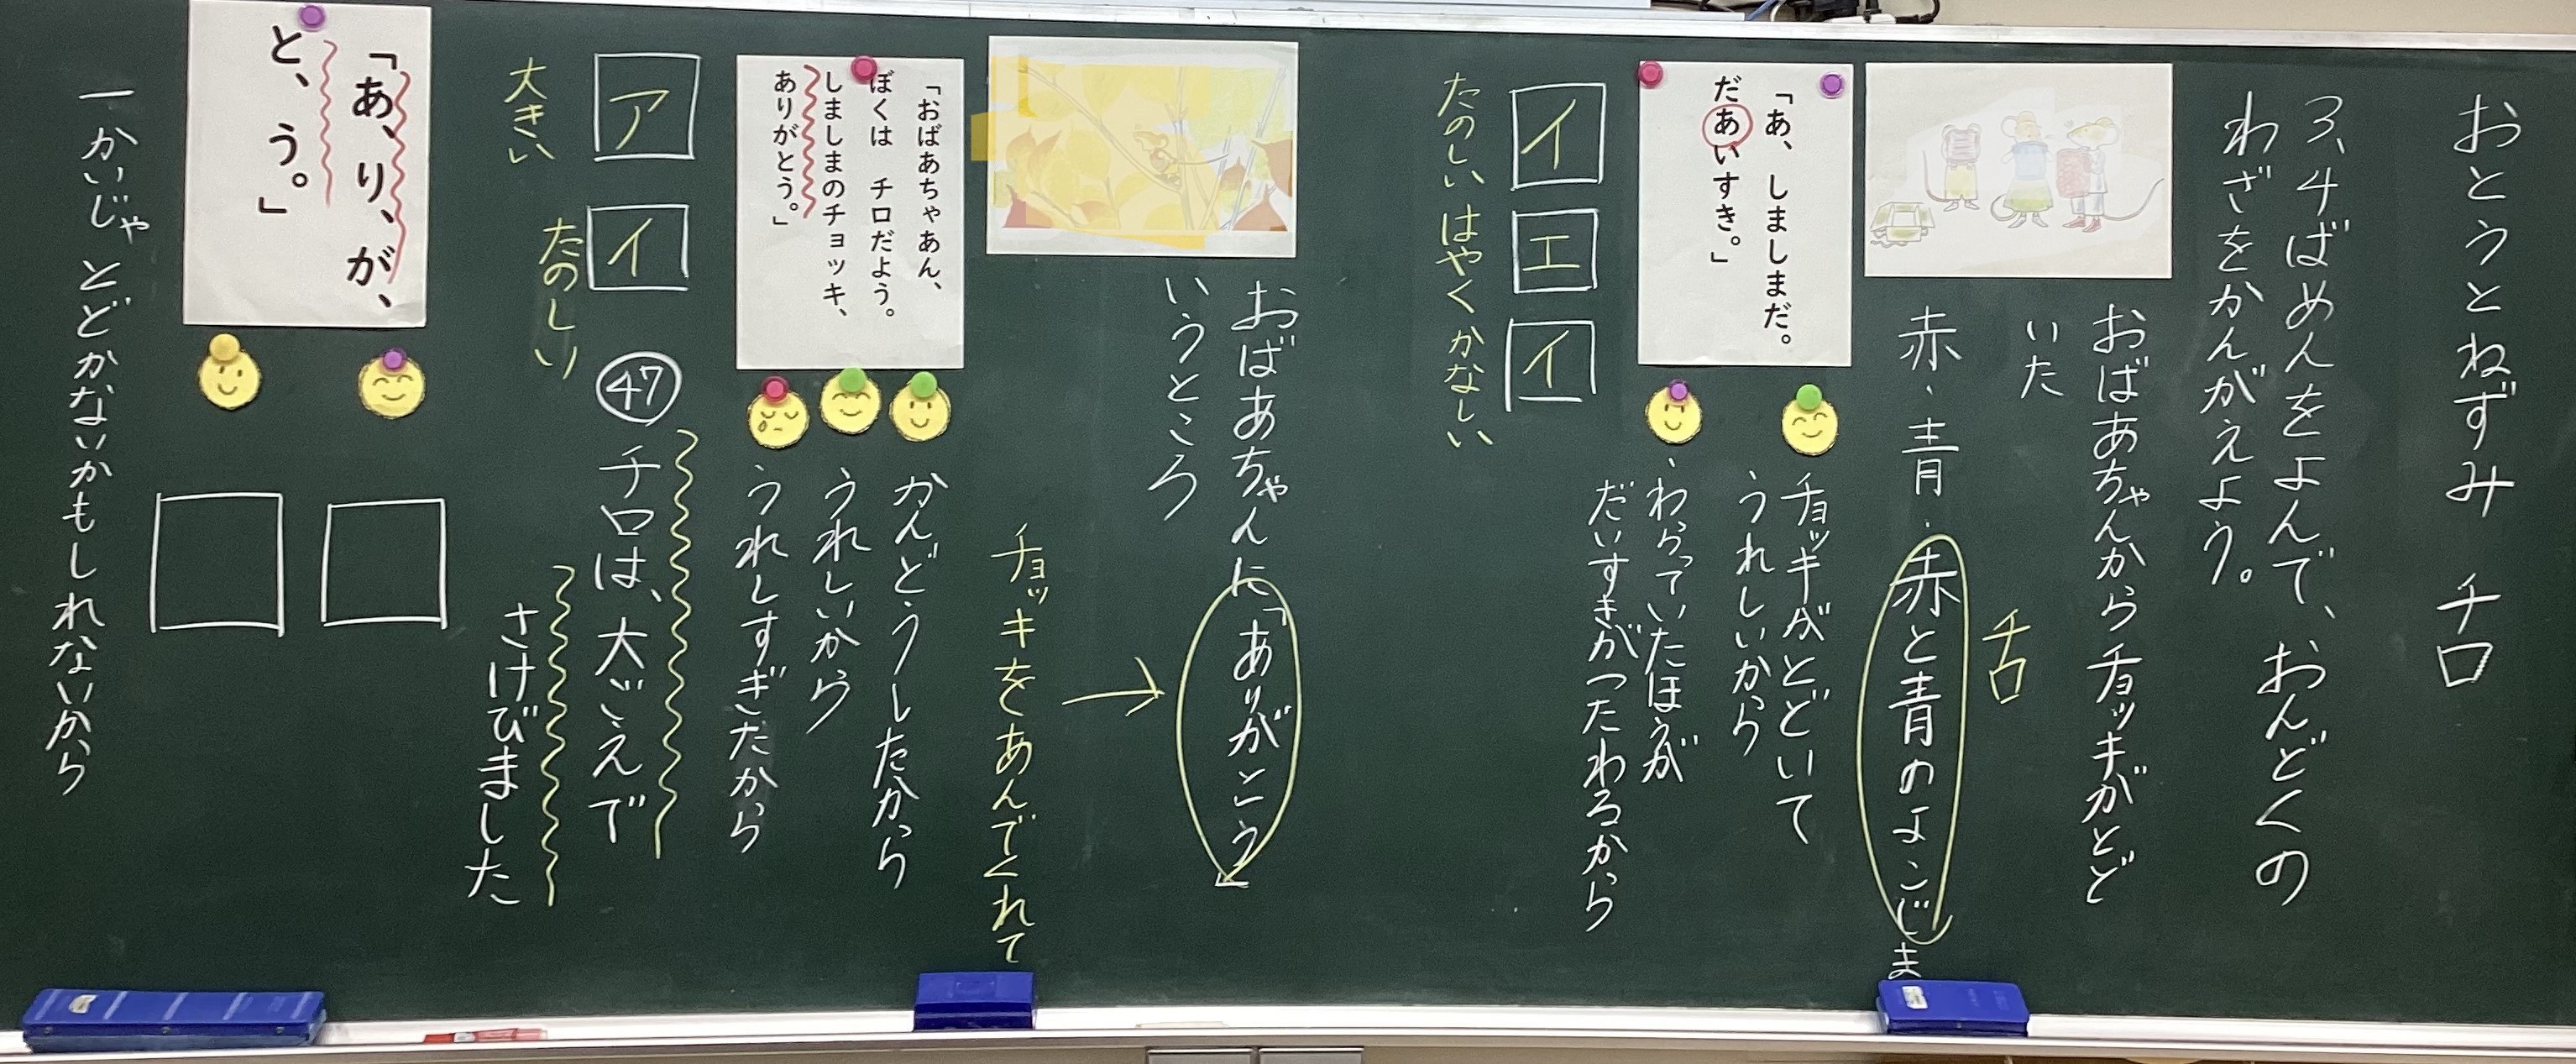 おとうとねずみ　チロ
3、4ばめんをよんで、おんどくの
わざをかんがえよう。
おばあちゃんからチョッキがとど
いた
チロ
赤・青・赤と青のよこじま
「あ、しましまだ。
だあいすき。」
チョッキがとどいて
うれしいから
わらっていたほうが
だいすきがつたわるから
イ
エ
イ
たのしい　はやく　かなしい
おばあちゃんに「ありがとう」
いうところ
チョッキをあんでくれて
「おばあちゃあん、
ぼくは　チロだよう。
しましまのチョッキ、
ありがとう。」
かんどうしたから
うれしいから
うれしすぎたから
ア
イ
㊼
チロは、大ごえで
さけびました
大きい
たのしい
「あ、り、が、
と、う。」
一かいじゃ　とどかないかもしれないから